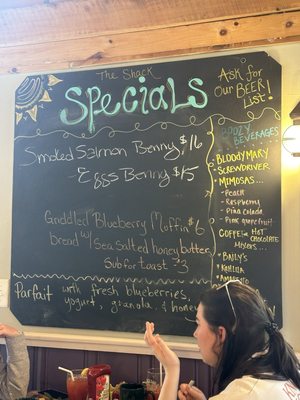 The Shack
Specials
Ask for
our BEER!
LIST!
Smoked Salmon Benny $16
Eggs Benny $15
Griddled Blueberry Muffin $6
bread w/ Sea Salted honey butter
Sub for toast $3
Parfait with fresh blueberries,
yogurt, granola, and honey
BOOZY
BEVERAGES
BLOODY MARY
SCREWDRIVER
MIMOSAS...
- PEACH
- Raspberry
- Piña Colada
- Pink grapefruit
COFFEE or HOT
CHOCOLATE
Mixers...
BAILY'S
KAHLUA
AMARETTO